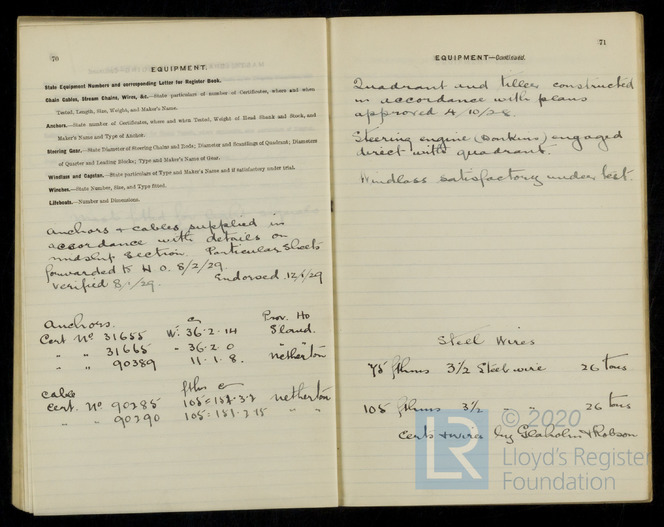 70
EQUIPMENT.
State Equipment Numbers and corresponding Letter for Register Book.
Chain Cables, Stream Chains, Wires, &c.—State particulars of number of Certificates, where and when
Tested, Length, Size, Weight, and Maker's Name.
Anchors.—State number of Certificates, where and when Tested, Weight of Head Shank and Stock, and
Maker's Name and Type of Anchor.
Steering Gear.—State Diameter of Steering Chains and Rods; Diameter and Scantlings of Quadrant; Diameters
of Quarter and Leading Blocks; Type and Maker's Name of Gear.
Windlass and Capstan.—State particulars of Type and Maker's Name and if satisfactory under trial.
Winches.—State Number, Size, and Type fitted.
Lifeboats.—Number and Dimensions.
Anchors & cables supplied in
accordance with details on
midship section. Particular Sheets
forwarded to H O. 8/2/29.
Verified Endorsed 12/6/29
Anchors. Prov. Ho
Cert No 31655 Wt 36.2.14
" " 31665 " 36.2.0 "
" " 90389 11.1.8. Netherton
Cable fthms
Cert. No 90285 Netherton
" " 90290 " "
71
EQUIPMENT—Continued.
Quadrant and tiller constructed
in accordance with plans
approved
Steering engine (Donkins) engaged
direct with quadrant.
Windlass satisfactory under test.
Steel Wires
75 fthms 3½ Steel wire 26 tons
105 fthms 3½ " " 26 tons
Certs & wire by Glaholm & Robson
LR
© 2020
Lloyd's Register
Foundation